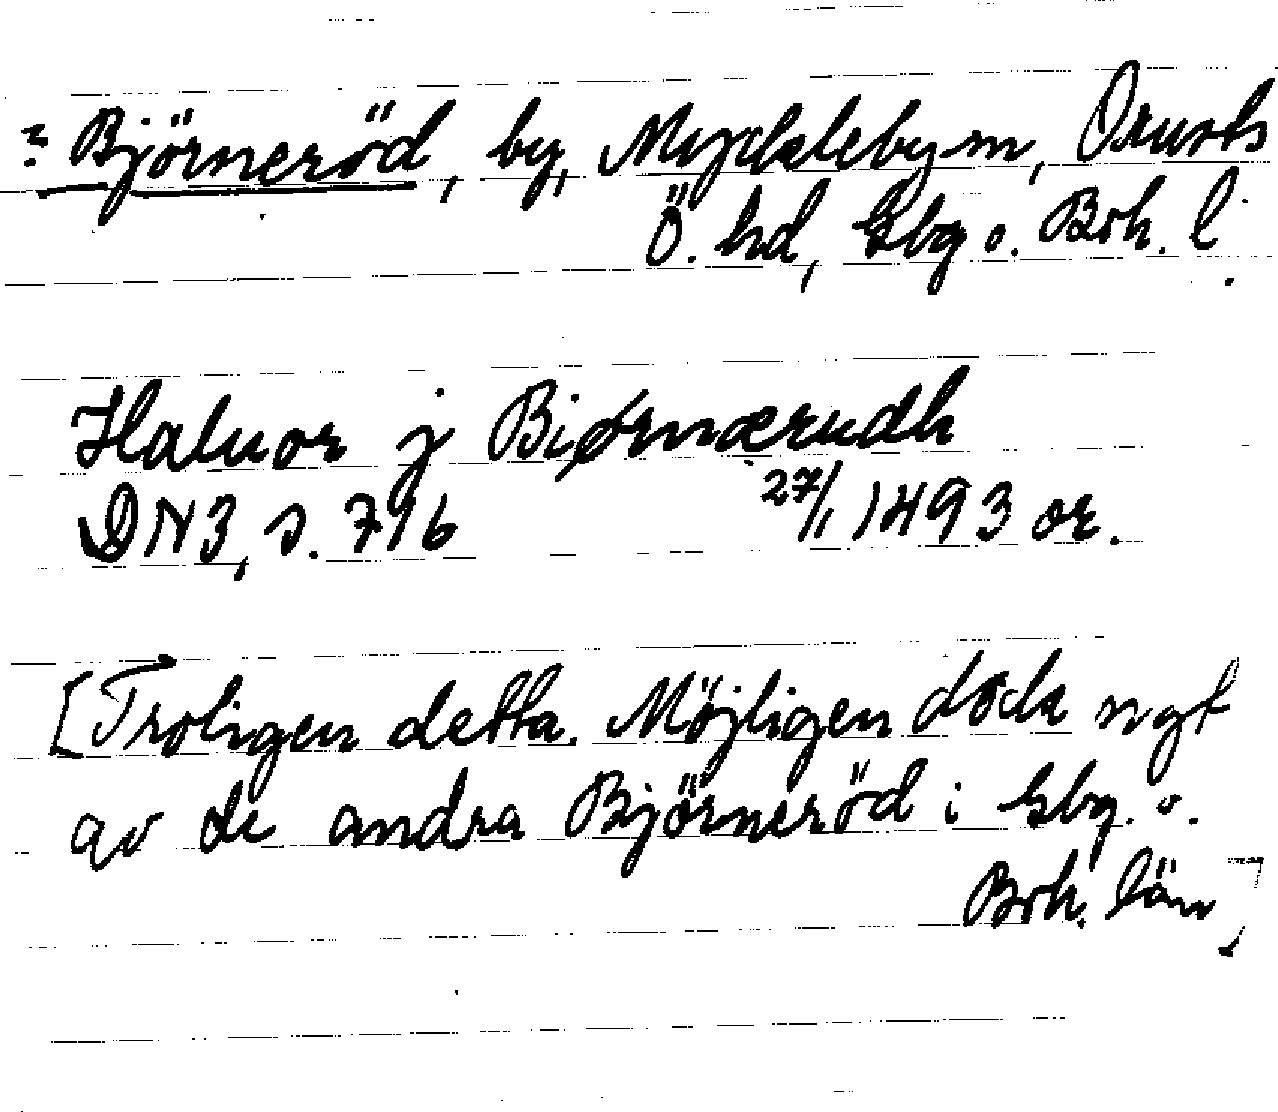 ? Björneröd, by, Myckleby sn, Orusts
Ö. hd, Gbg o. Boh. l.
Haluor j Biørnærudh
DN3, s. 716 27/1 1493 or.
[Troligen detta. Möjligen dock ngt
av de andra Björneröd i Gbg. o.
Boh. län]